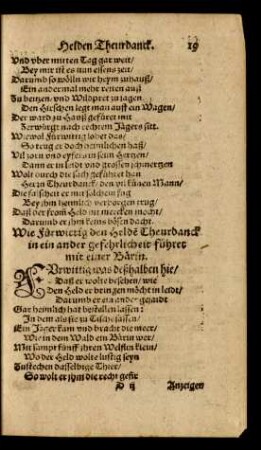 Helden Theurdanck. 19
Und uber mitten Tag gar weit/
Bey mir ist es nun essens zeit/
Darumb so wölln wir heym zuhauß/
Ein andermal mehr reiten auß
Zu beitzen/ und Wildpret zu jagen.
Den Hirschen legt man auff ein Wagen/
Der ward zu Hauß gefüret mit
Zerwürgt nach rechtem Jägers sitt.
Wiewol Fürwittig lobet das/
So trug er doch heimlichen haß/
Vil zorn und eyfer in seim Hertzen/
Dann er in leidt und grossen schmertzen
Wolt durch die sach geführet han
Herrn Theurdanck/ den vil künen Mann/
Die falscheit er mit solchem fug
Bey jhm heimlich verborgen trug/
Daß der from Held nit mercken mocht/
Darumb er jhm keins bösen dacht.
Wie Fürwittig den Held Theurdanck
in ein ander gefehrlicheit führet
mit einer Bärin.
FUrwittig was deßhalben hie/
Daß er wolte besehen/ wie
Den Held er bringen möcht in leidt/
Darumb er ein ander gejaidt
Gar heimlich hat bestellen lassen:
In dem als sie zu Tische sassen/
Ein Jäger kam und bracht die meer/
Wie in dem Wald ein Bärin wer/
Mit sampt fünff ihren Welflen klein/
Wo der Held wolte lustig seyn
Zustechen dasselbige Thier/
So wolt er jhm die recht gefür
D ij Anzeigen